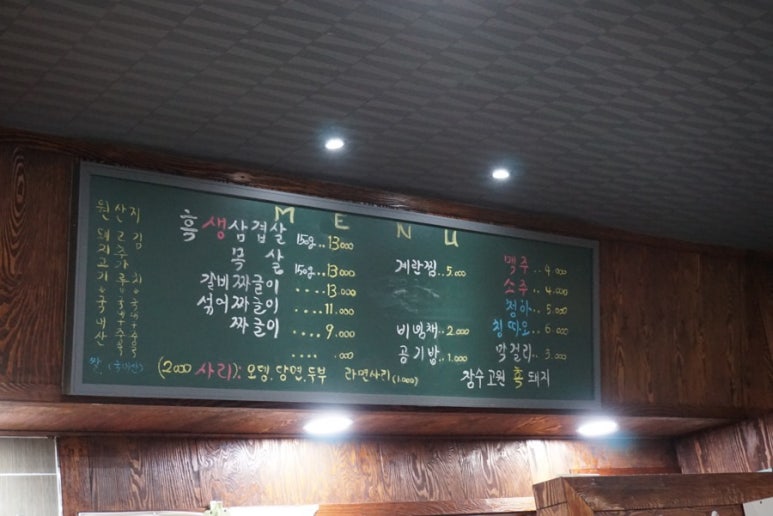 MENU
원산지
흑생삼겹살 150g..13.000
목살 150g..13.000
갈비짜글이 ....13.000
섞어짜글이 ....11.000
짜글이 ....9.000
.... .000
계란찜..5.000
비빔채..2.000
공기밥..1.000
맥주..4.000
소주..4.000
청하..5.000
칭따오..6.000
막걸리..3.000
쌀.(국내산)
(2000 사리): 오뎅.당면.두부
라면사리(1.000)
장수고원 흑돼지